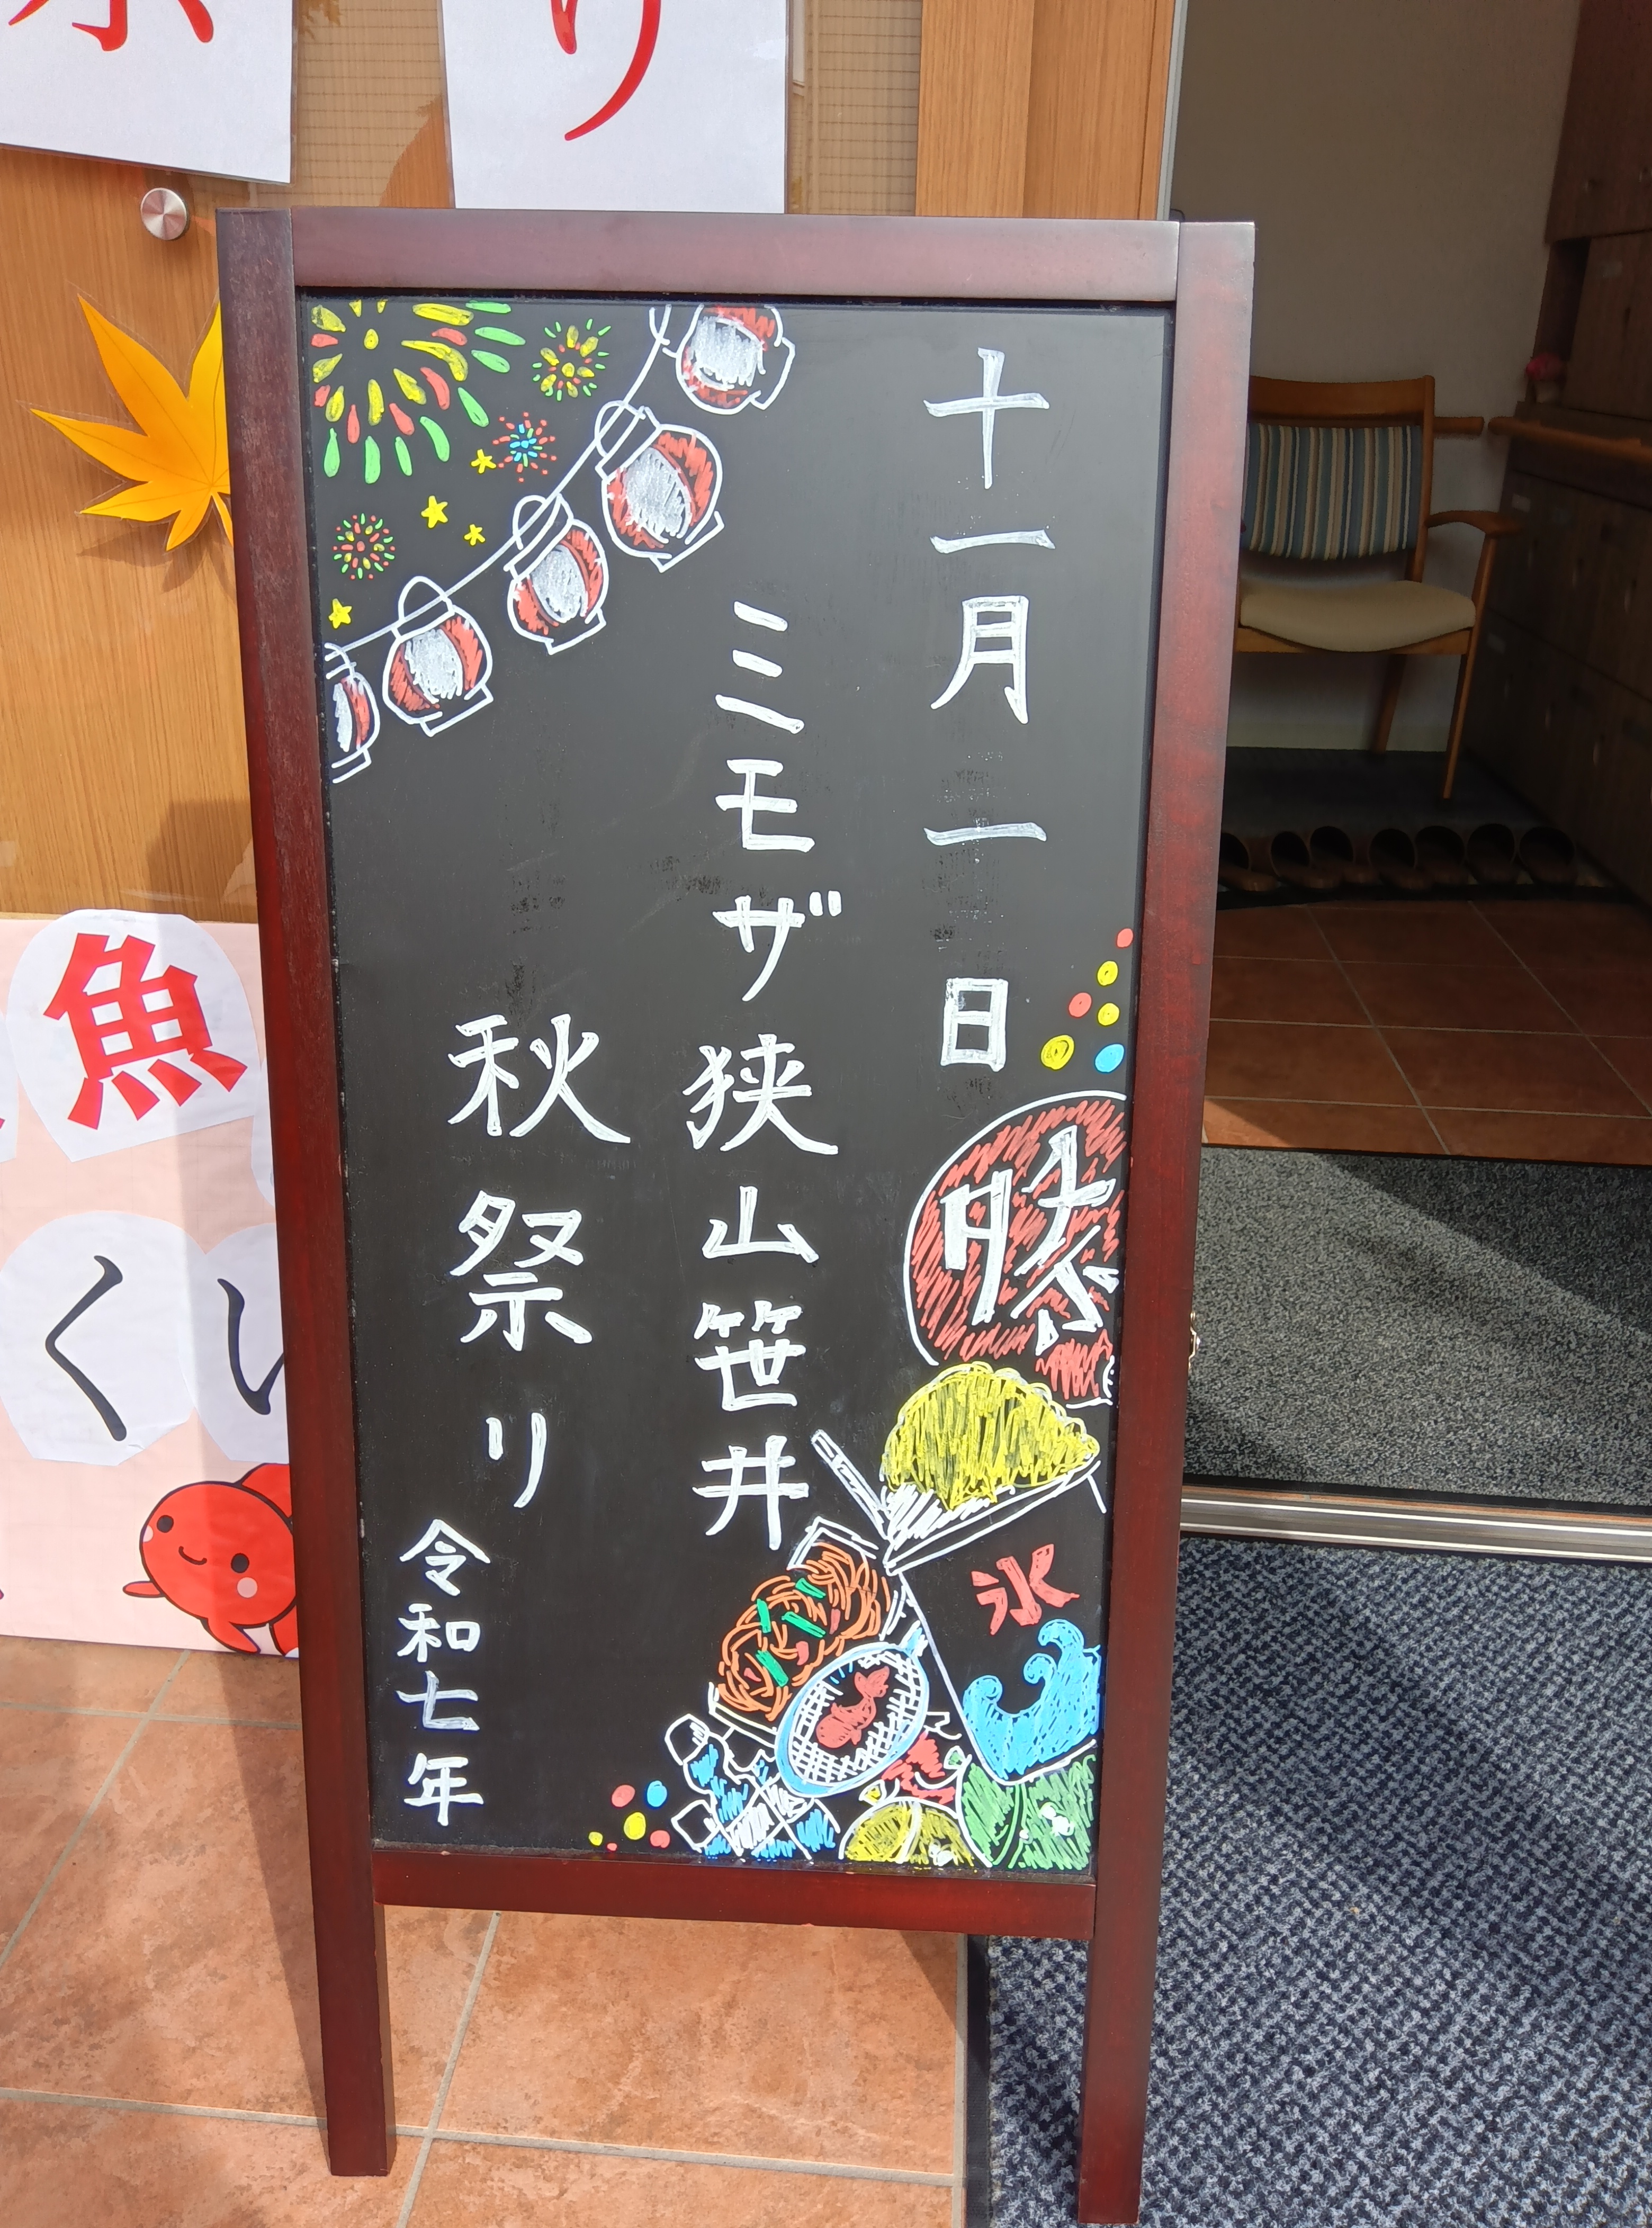 り
十一月一日
ミモザ狭山笹井
秋祭り
令和七年
氷
魚
くい